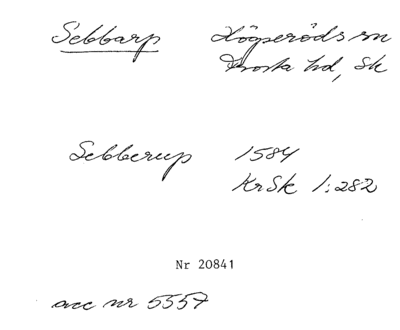 Sebbarp Högseröds sn
Frosta hd, Sk
Sebberup 1584
KrSk 1:282
Nr 20841
acc nr 5557